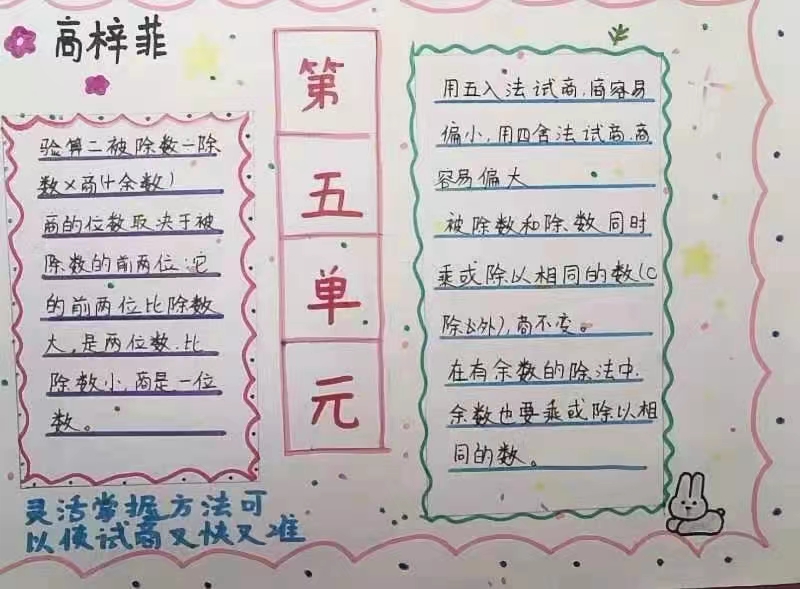 高梓菲
第
五
单
元
验算二被除数一除
数×商(+余数)
商的位数取决于被
除数的前两位:它
的前两位比除数
大,是两位数.比
除数小,商是一位
数。
用五入法试商,商容易
偏小,用四舍法试商,商
容易偏大
被除数和除数同时
乘或除以相同的数(0
除以外),商不变。
在有余数的除法中,
余数也要乘或除以相
同的数。
灵活掌握方法可
以使试商又快又准